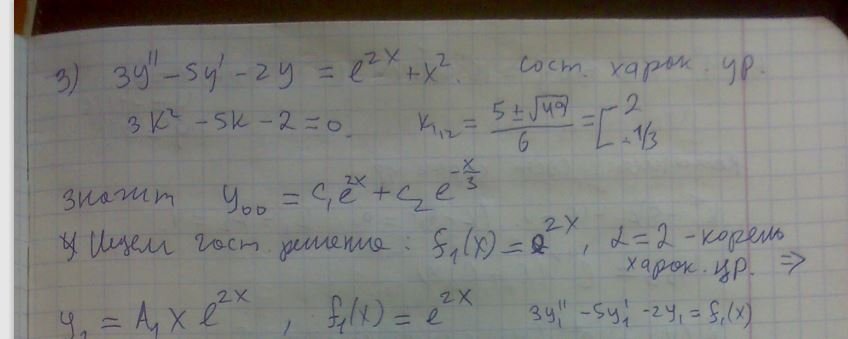 3) 3y'' - 5y' - 2y = e^{2x} + x^2. сост. харак. ур.
3k^2 - 5k - 2 = 0. k_{1,2} = \frac{5 ± \sqrt{49}}{6} = [ 2 -1/3
значит y_{00} = C_1 e^{2x} + C_2 e^{-\frac{x}{3}}
Ищем част. решение: f_1(x) = e^{2x}, α = 2 - корень
харак. ур. ⇒
y_1 = A_1 x e^{2x}, f_1(x) = e^{2x} 3y_1'' - 5y_1' - 2y_1 = f_1(x)